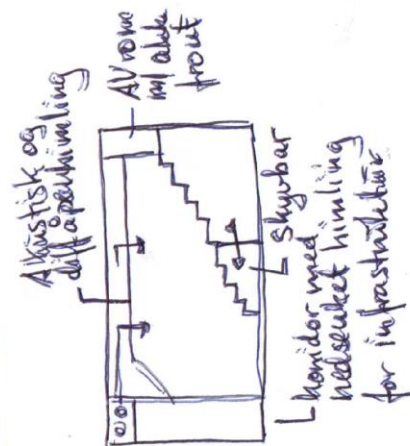 Akustisk og
diff åpen himling
AV rom
m/ akk
front
Skyvbar
korridor med
nedsenket himling
for infrastruktur